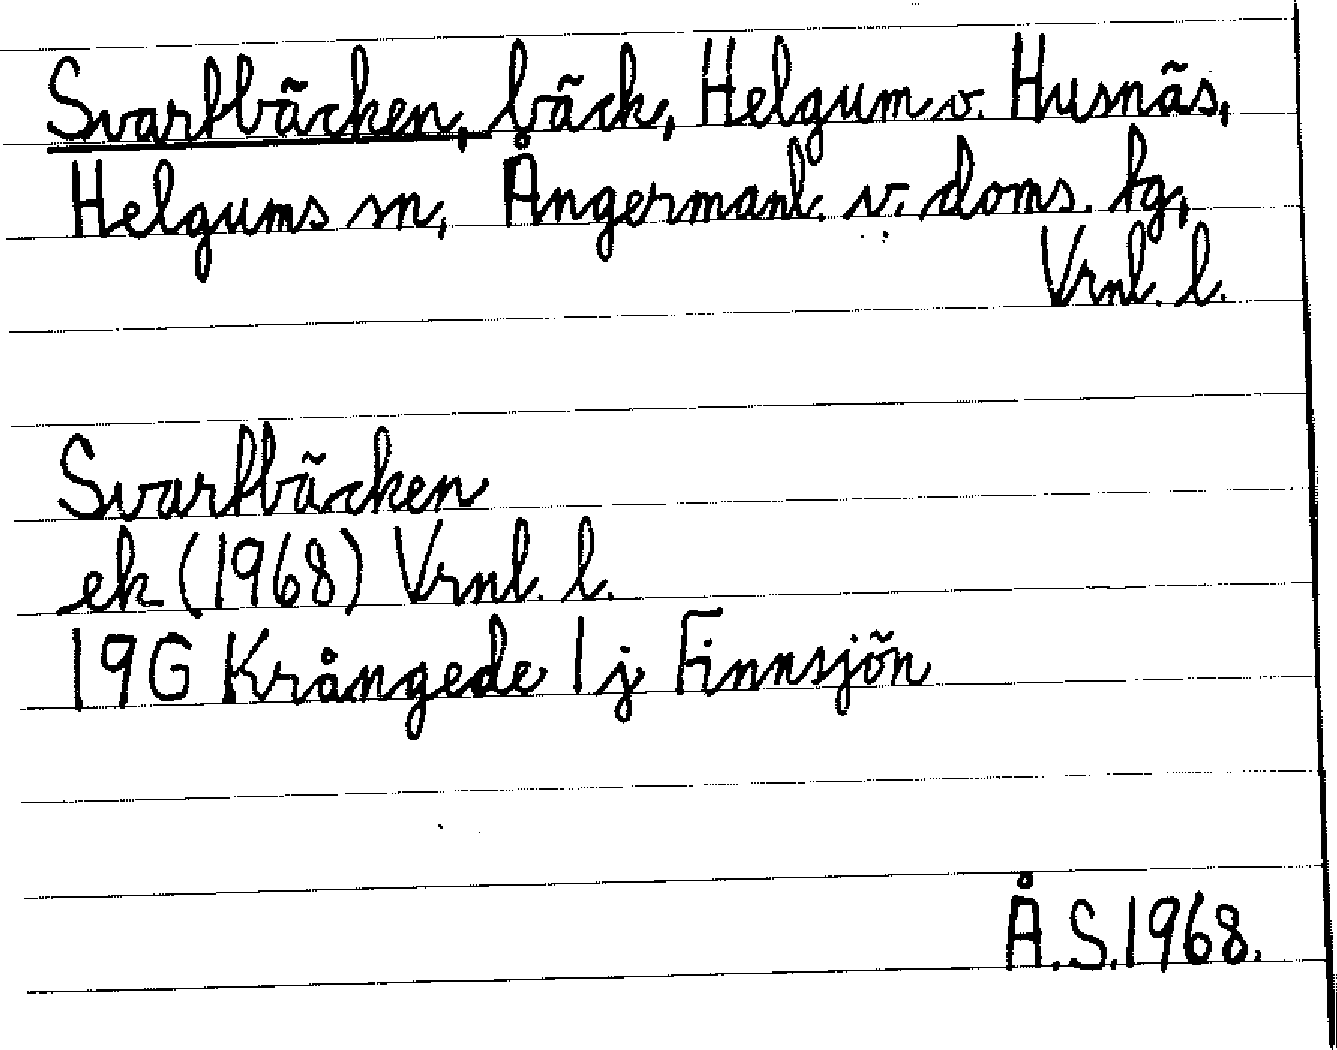 Svartbäcken, bäck, Helgum o. Husnäs,
Helgums sn, Ångermanl. v. doms. tg,
Vrnl. l.
Svartbäcken
ek (1968) Vrnl. l.
19G Krångede 1j Finnsjön
Å.S.1968.